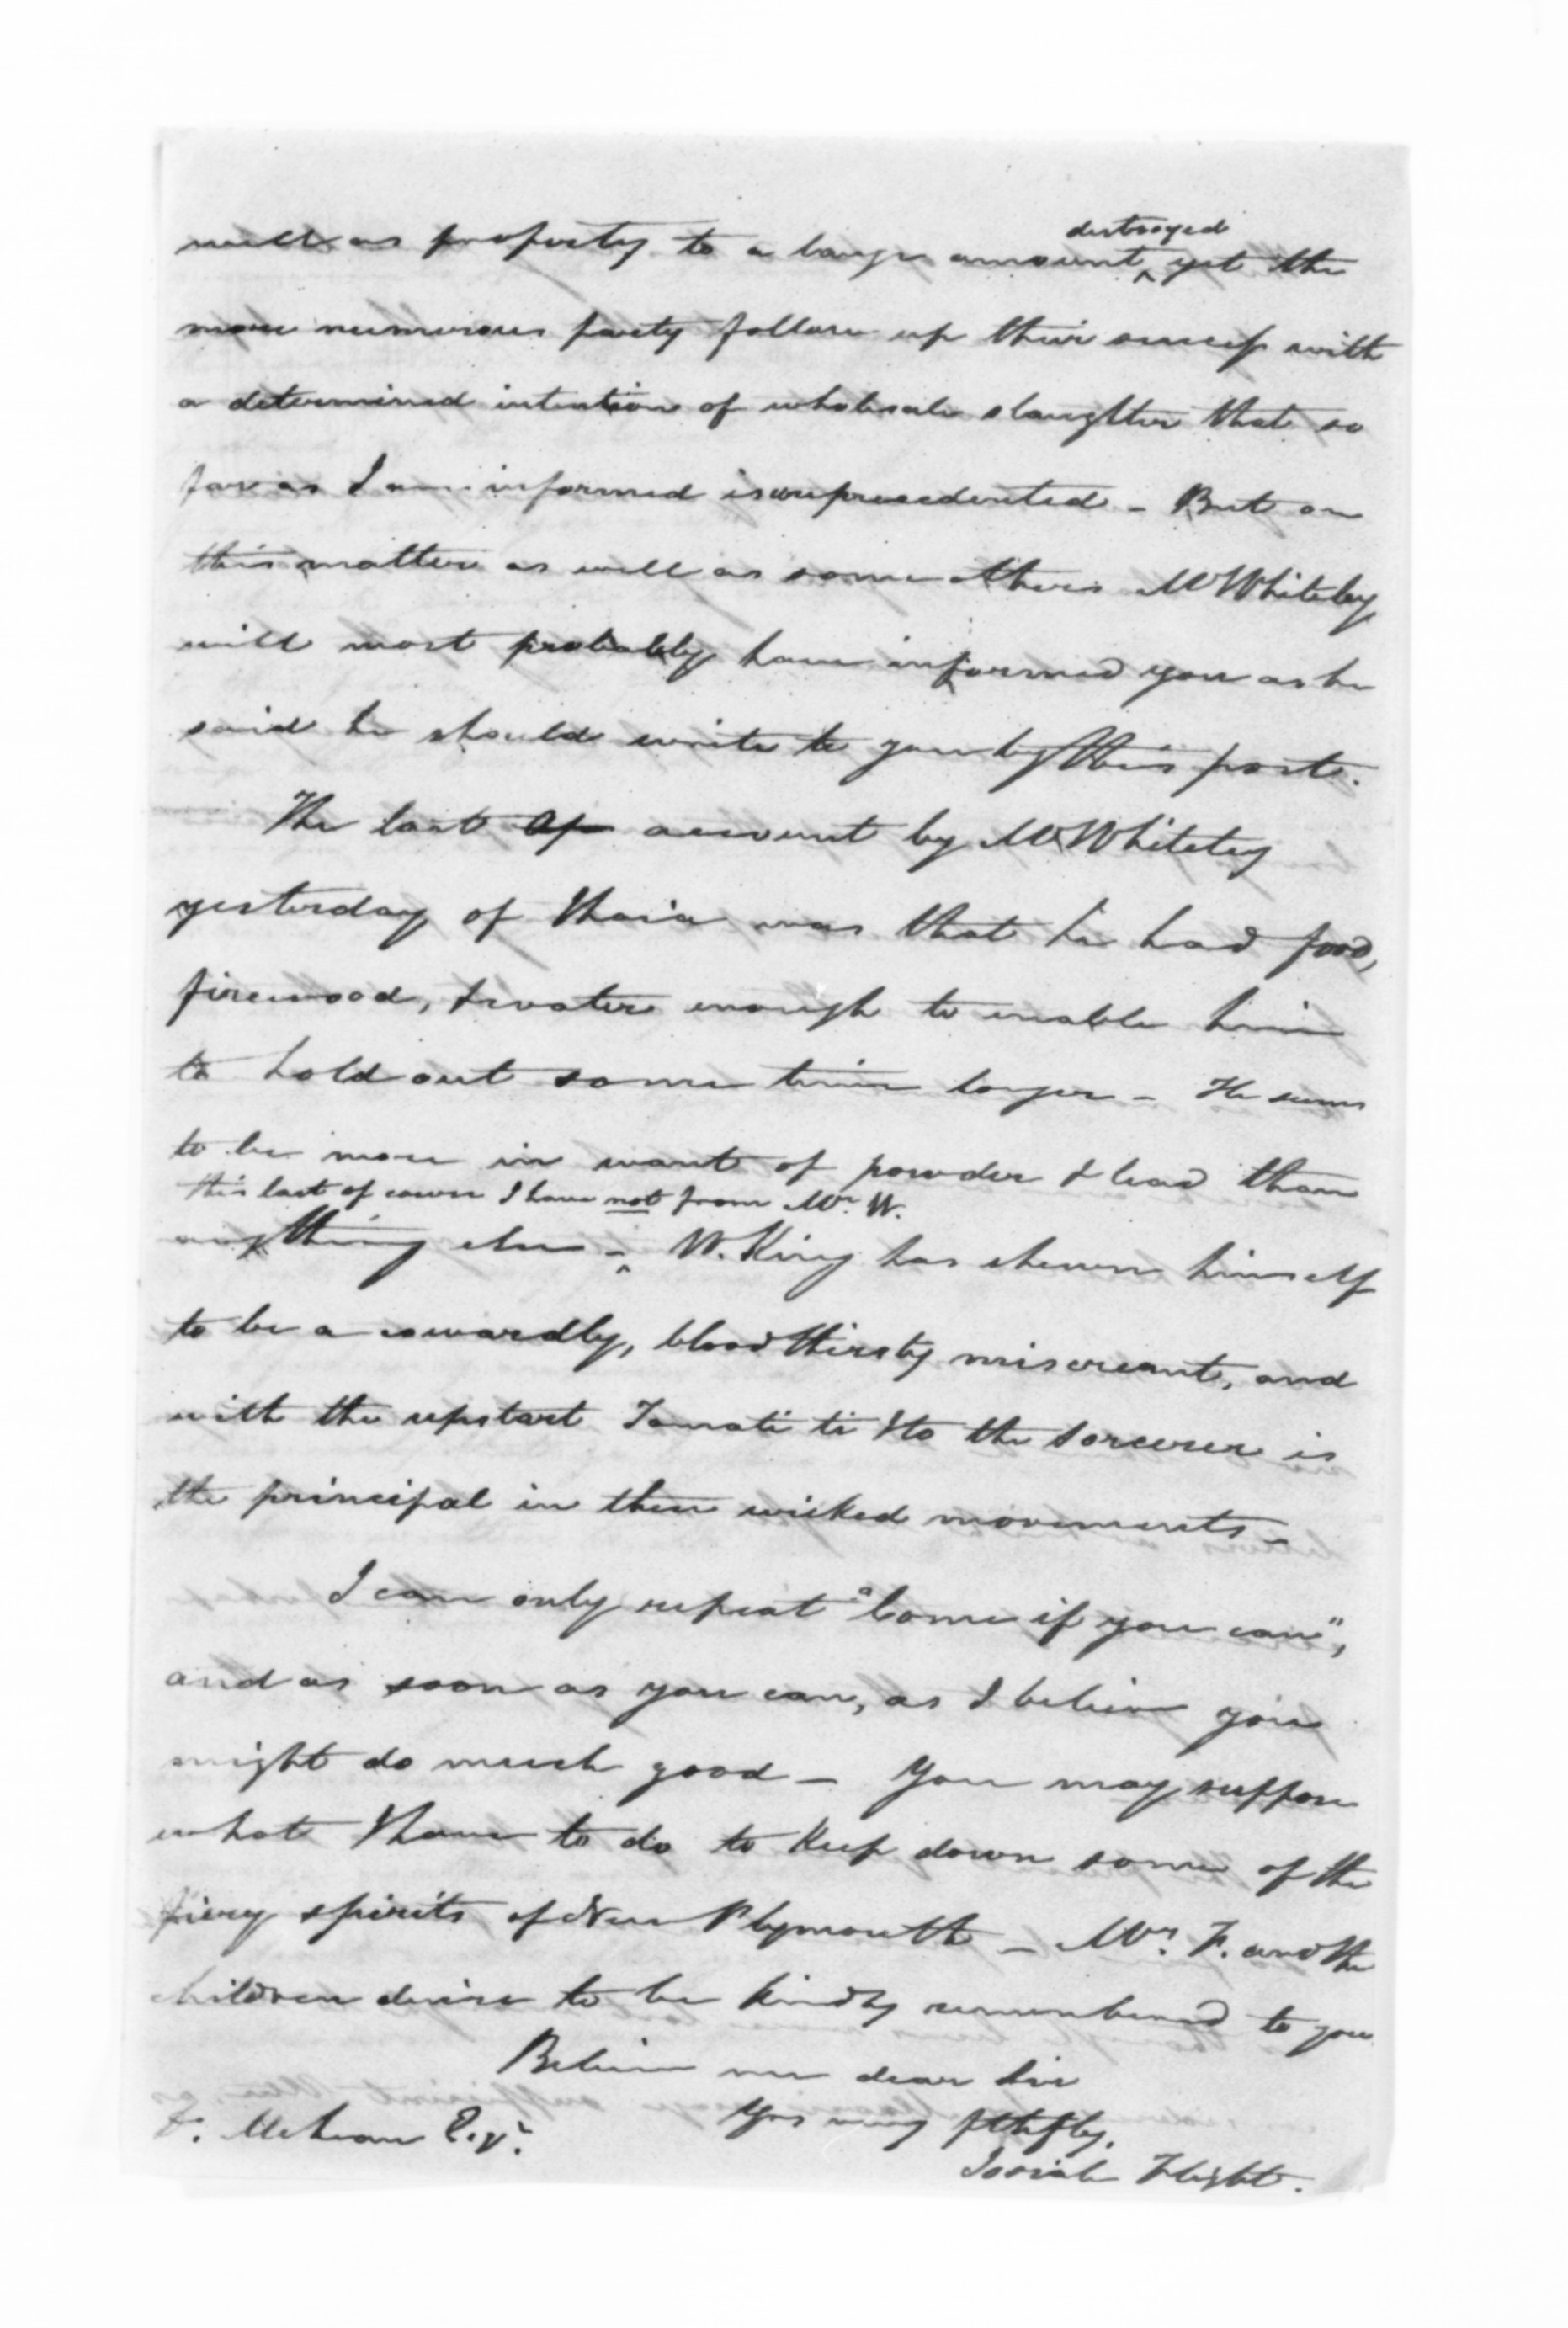 well as property to a large amount destroyed yet the
more numerous party follow up their success with
a determined intention of wholesale slaughter that so
far as I am informed is unprecedented - But on
this matter as well as some others Mr Whiteley
will most probably have informed you as he
said he should write to you by this post.
The last Ap account by Mr Whiteley
yesterday of Ihaia was that he had food,
firewood, & water enough to enable him
to hold out some time longer - He seems
to be more in want of powder & lead than
this last of course I have not from Mr. W.
anything else - W. King has shewn himself
to be a cowardly, bloodthirsty miscreant, and
with the upstart Tamati ti Ito the sorcerer is
the principal in these wicked movements -
I can only repeat "Come if you can",
and as soon as you can, as I believe you
might do much good - You may suppose
what I have to do to keep down some of the
fiery spirits of New Plymouth - Mrs. F. and the
children desire to be kindly remembered to you
Believe me dear Sir
Yrs very fthfly.
Josiah Flight.
D. McLean Esqr.